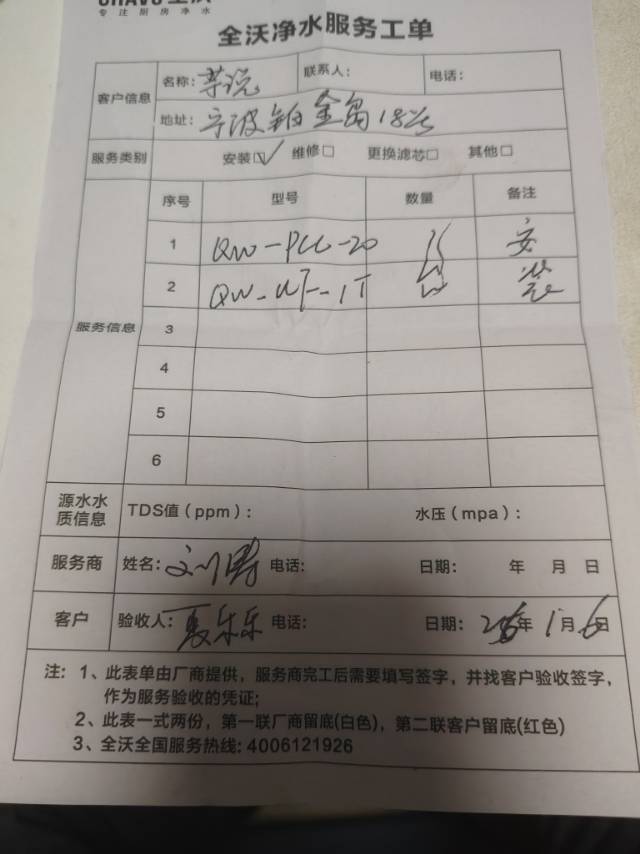 专注厨房净水
全沃净水服务工单
客户信息 名称: 茶说 联系人: 电话:
地址: 宁波铂金岛18
服务类别 安装☑ 维修□ 更换滤芯□ 其他□
服务信息 序号 型号 数量 备注
1 QW-PCC-20 安
2 QW-UF-1T 装
3
4
5
6
源水水质信息 TDS值(ppm): 水压(mpa):
服务商 姓名: 电话: 日期: 年 月 日
客户 验收人: 夏乐乐 电话: 日期: 年1月6日
注: 1、此表单由厂商提供，服务商完工后需要填写签字，并找客户验收签字，
作为服务验收的凭证;
2、此表一式两份，第一联厂商留底(白色)，第二联客户留底(红色)
3、全沃全国服务热线: 4006121926